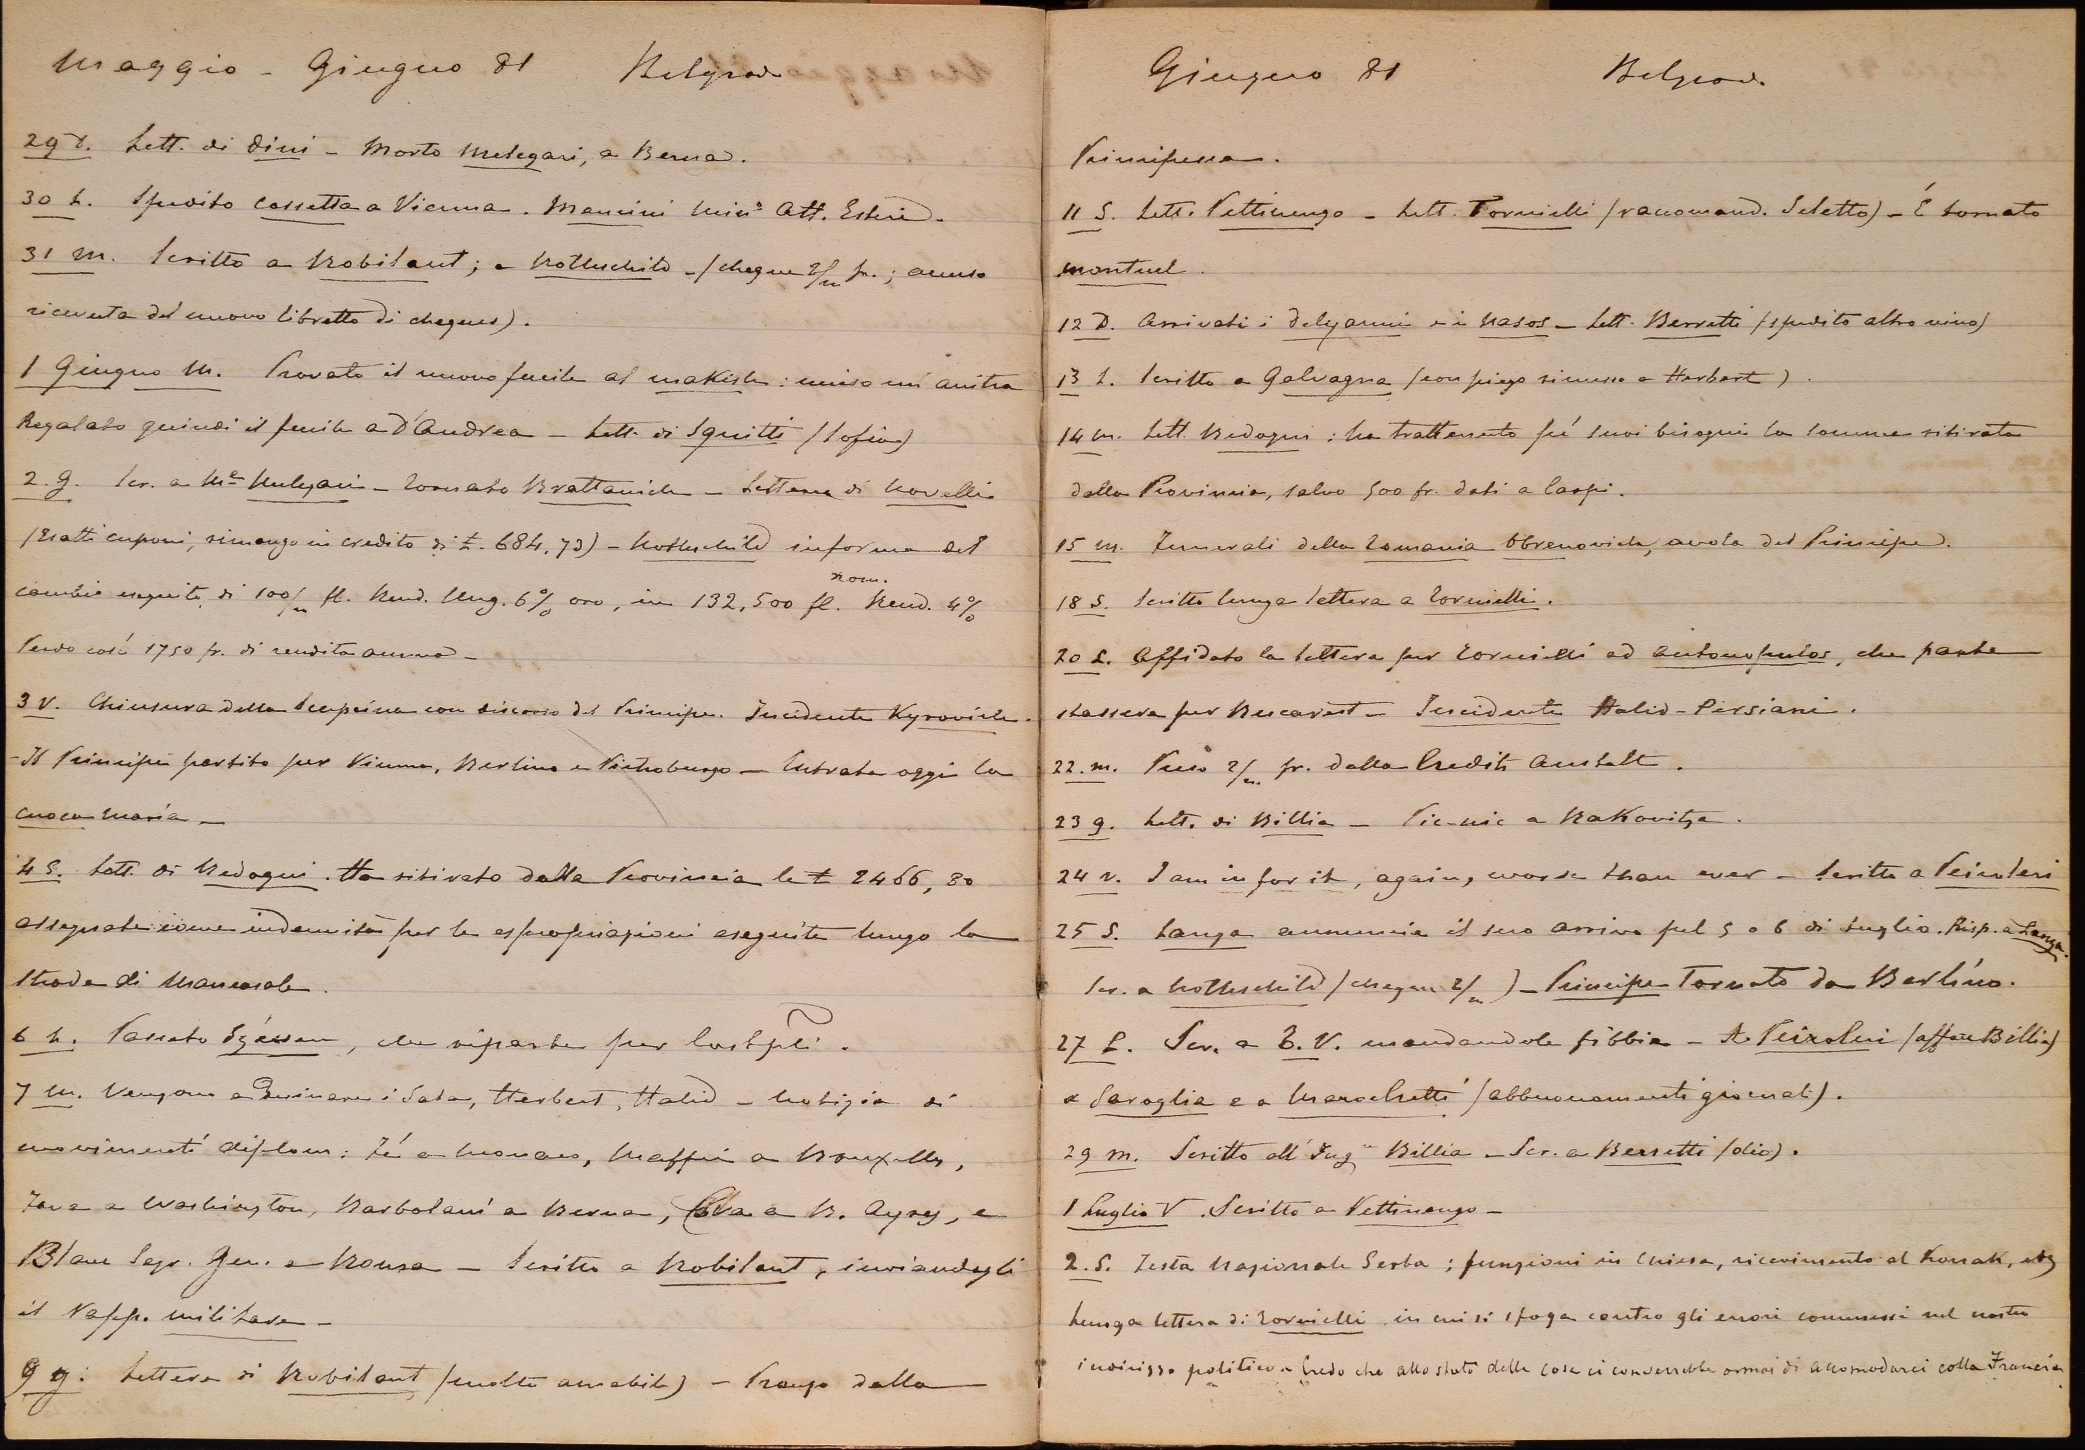 Maggio - Giugno 81 Belgrado
29 D. Lett. di Dini - Morto Melegari, a Berna.
30 L. Spedito cassetta a Vienna. Mancini Mino Aff. Esteri.
31 M. Scritto a Robilant; a Rothschild - (cheque 2/m fr.; accuso
ricevuta del nuovo libretto di cheques).
1 Giugno M. Provato il nuovo fucile al makish: ucciso un'anitra
Regalato quindi il fucile a D'Andrea - Lett. di Squitti (Sofia)
2. G. Scr. a Me Melegari - Tornato Brattanich - Lettera di Novelli
(Esatti cuponi, rimango in credito di £. 684,73) - Rothschild informa del
cambio eseguito di 100/m fl. Rend. Ung. 6% oro, in 132,500 fl. nom. Rend. 4%
Perdo così 1750 fr. di rendita annua -
3 V. Chiusura della Scupcina con discorso del Principe. Incidente Kyrovich.
- Il Principe partito per Vienna, Berlino e Pietroburgo - Entrata oggi la
cuoca Maria -
4 S. Lett. di Bedogni. Ha ritirato dalla Provincia le £ 2466,80
assegnate come indennità per le espropriazioni eseguite lungo la
strada di Mancasale.
6 L. Passato Szécsen, che riparte per Costpli.
7 M. Vengono a desinare i Sala, Herbert, Halid - Notizia di
movimenti diplom: Fé a Monaco, Maffei a Bruxelles,
Fava a Washington, Barbolani a Berna, Cova a B. Ayres, e
Blanc Segr. Gen. a Roma - Scritto a Robilant, inviandogli
il Rapp. militare -
9 g: Lettera di Robilant (molto amabile) - Pranzo dalla
Giugno 81 Belgrado.
Principessa.
11 S. Lett. Pettinengo - Lett. Tornielli (raccomand. Seletto) - È tornato
Montuel.
12 D. Arrivati i Delyanni e i Rasos - Lett. Berretti (spedito altro vino)
13 L. Scritto a Galvagna (con piego rimesso a Herbert).
14 M. Lett. Bedogni: ha trattenuto pé suoi bisogni la somma ritirata
dalla Provincia, salvo 500 fr. dati a Carpi.
15 M. Funerali della Tomania Obrenovich, avola del Principe.
18 S. Scritto lunga lettera a Tornielli.
20 L. Affidato la lettera per Tornielli ad Antonopulos, che parte
stassera per Bucarest - Incidente Halid - Persiani.
22. M. Preso 2/m. fr. dalla Credit Anstalt.
23 g. Lett. di Billia - Pic-nic a Rakovitza.
24 V. I am in for it, again, worse than ever - Scritto a Peiroleri
25 S. Lanza annuncia il suo arrivo pel 5 o 6 di Luglio. Risp. a Lanza.
Scr. a Rothschild (cheque 2/m) - Principe tornato da Berlino.
27 L. Scr. a E. V. mandandole fibbia - A Peiroleri (affare Billia)
a Saroglia e a Marochetti (abbuonamenti giornali).
29 M. Scritto all'Ingre Billia - Scr. a Berretti (olio).
1 Luglio V. Scritto a Pettinengo -
2. S. Festa Nazionale Serba; funzioni in Chiesa, ricevimento al Konak, etc
Lunga lettera di Tornielli in cui si sfoga contro gli errori commessi nel nostro
indirizzo politico. Credo che allo stato delle cose ci converrebbe ormai di accomodarci colla Francia.